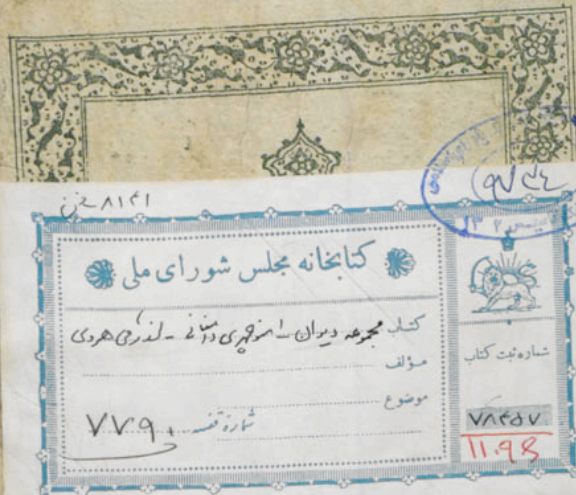 ۸۱۴۱
کتابخانه مجلس شورای ملی
کتاب مجموعه دیوان منوچهری دامغانی - ازرقی هروی
مؤلف
موضوع
شماره قفسه ۷۷۹۰
شماره ثبت کتاب
۷۸۴۵۷